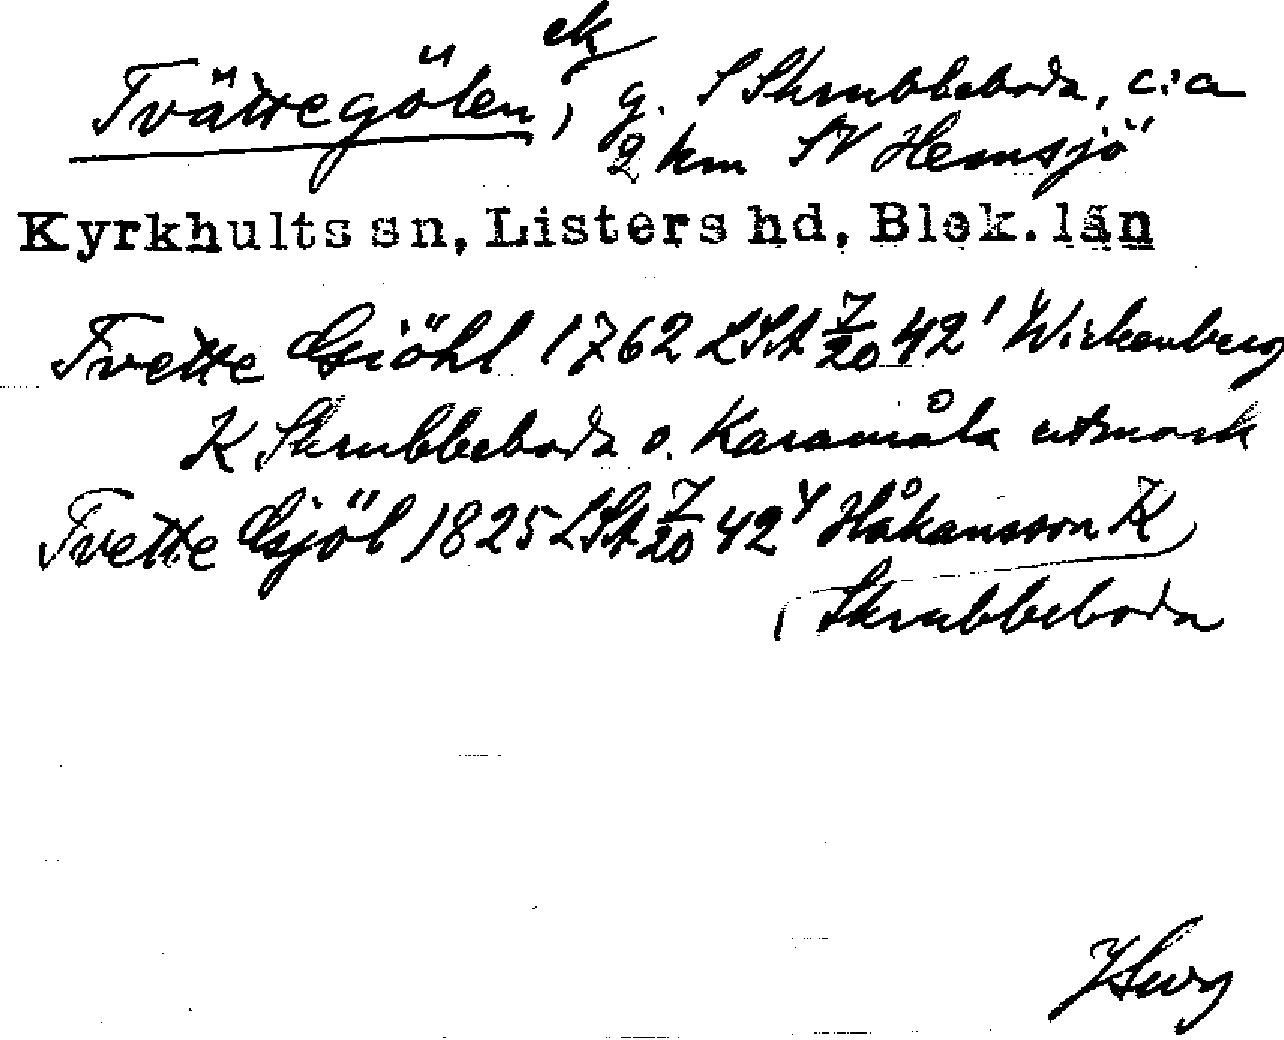 ek
Tvättegölen, g. S Skrubbeboda, c:a
2 km SV Hemsjö
Kyrkhults sn, Listers hd, Blek. län
Tvette Giöhl 1762 LSA 7/20 42' Wirkenberg
K Skrubbeboda o. Karamåla utmark
Tvette Gjöl 1825 LSA 7/20 42 Håkansson K
Skrubbeboda